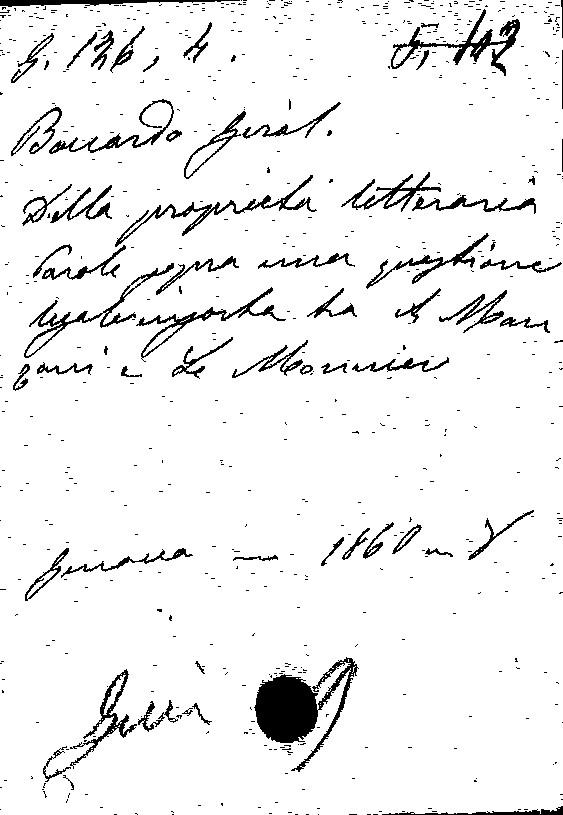 G. 126, 4. F. 142
Boccardo Gerol.
Della proprietà letteraria
Parole sopra una questione
legale insorta tra A. Man
zoni e Le Monnier
Genova — 1860 in 8